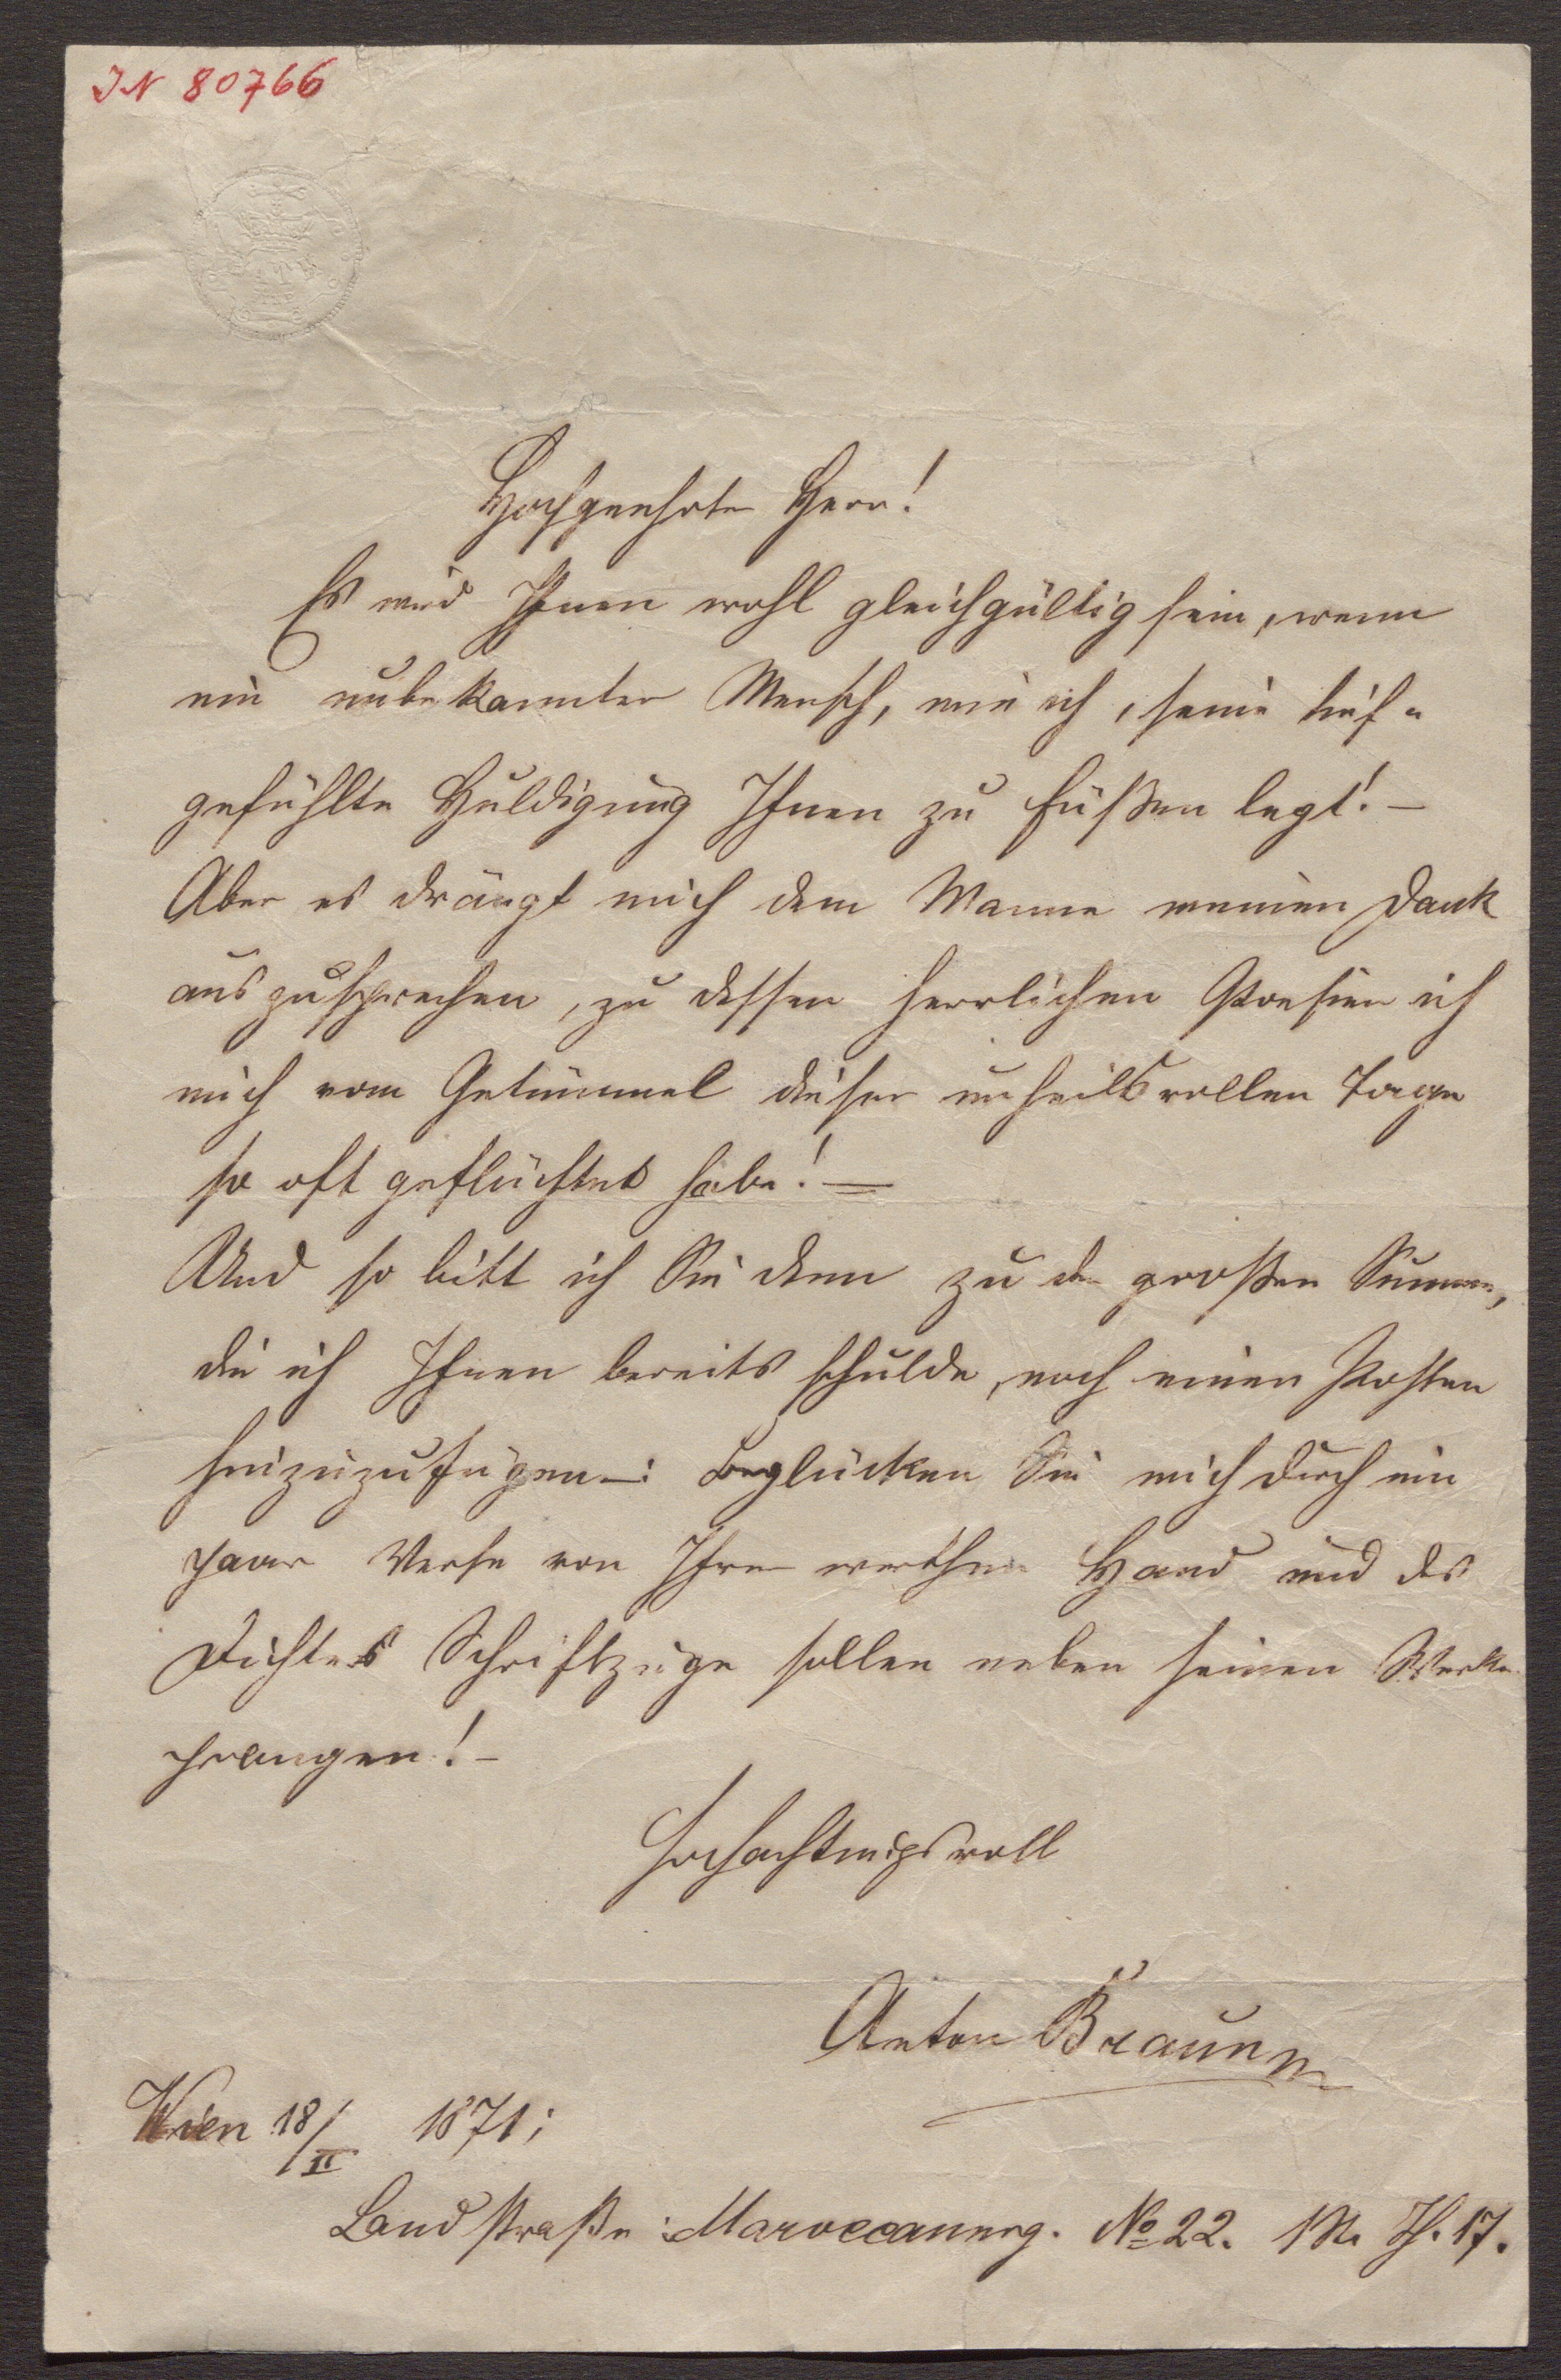 IN 80766
Hochgeehrter Herr!
Es wird Ihnen wohl gleichgültig sein, wenn
ein unbekannter Mensch, wie ich, seine tief-
gefühlte Huldigung Ihnen zu Füßen legt! –
Aber es drängt mich dem Manne meinen Dank
auszusprechen, zu dessen herrlichen Poesien ich
mich vom Getümmel dieser unheilsvollen Tage
so oft geflüchtet habe! –
Und so bitt ich Sie denn zu der großen Summe,
die ich Ihnen bereits schulde, noch einen Posten
hinzuzufügen –: Beglücken Sie mich durch ein
paar Verse von Ihrer werthen Hand und des
Dichters Schriftzüge sollen neben seinen Werken
prangen! –
Hochachtungsvoll
Anton Braunn
Wien 18/II 1871;
Landstraße: Maroccanerg. No 22. Th. 17.